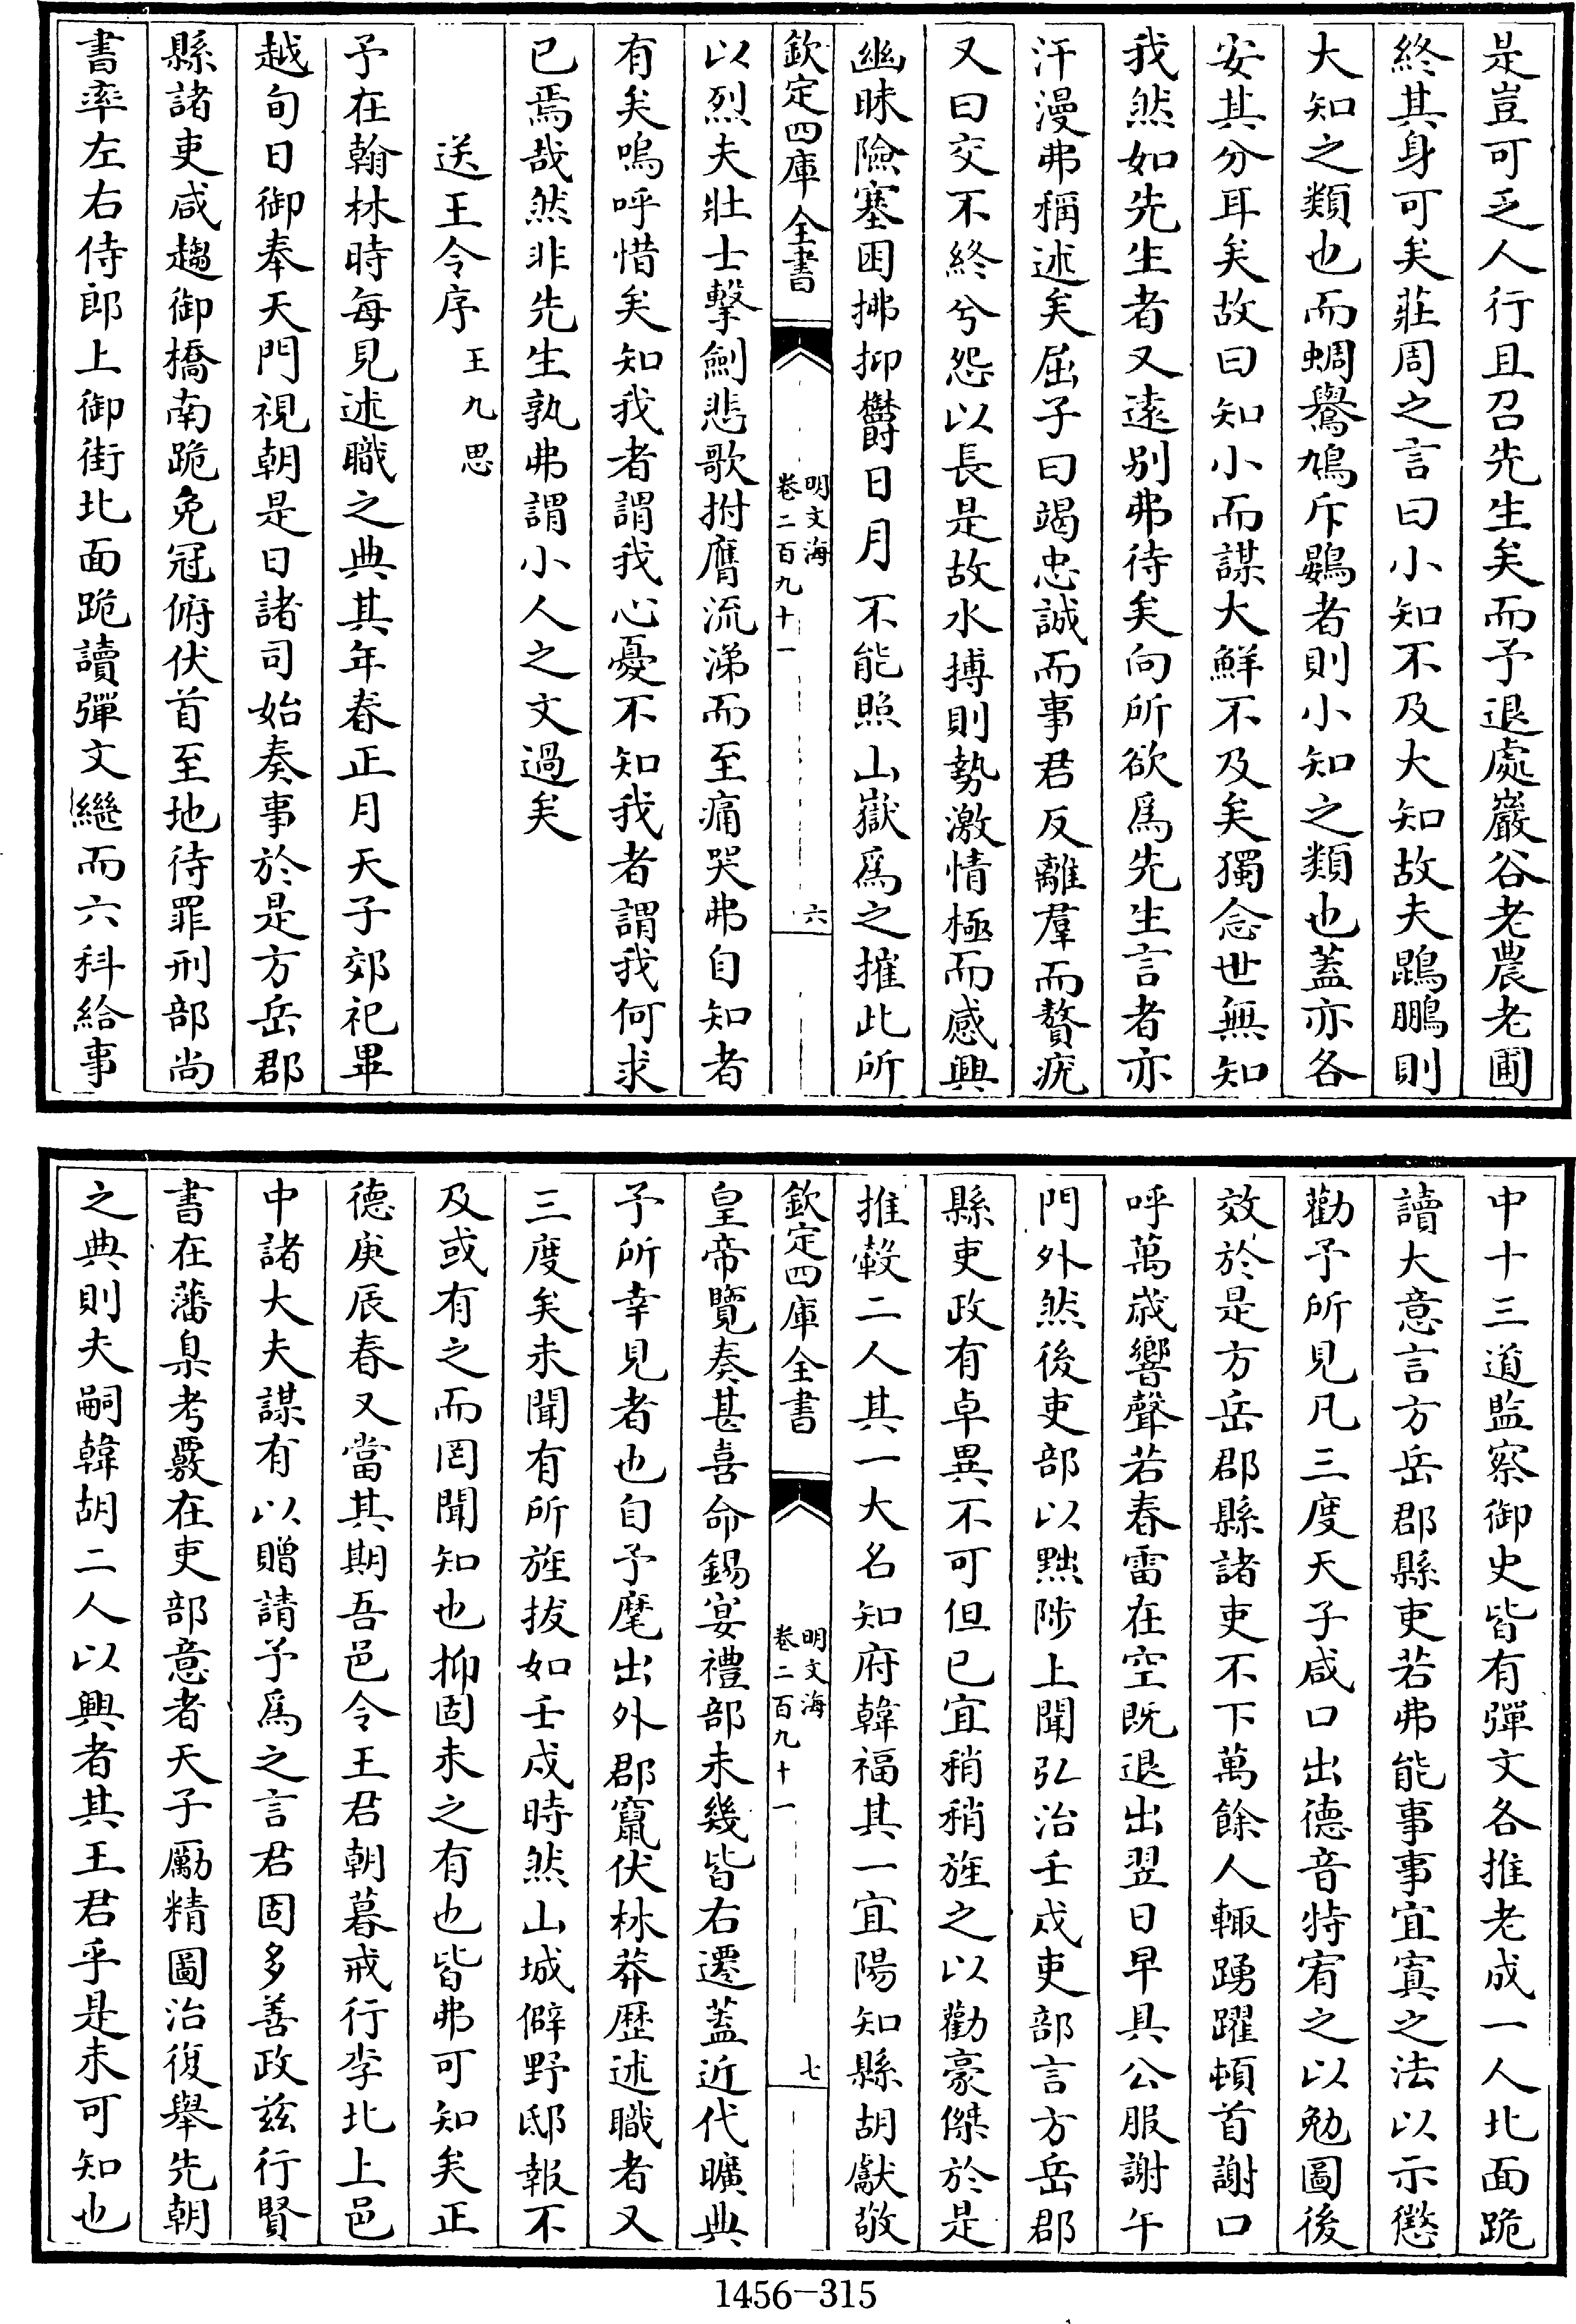 是豈可乏人行且召先生矣而予退處巖谷老農老圃
終其身可矣莊周之言曰小知不及大知故夫鵾鵬則
大知之類也而蜩鷽鳩斥鷃者則小知之類也蓋亦各
安其分耳矣故曰知小而謀大鮮不及矣獨念世無知
我然如先生者又遠别弗待矣向所欲爲先生言者亦
汗漫弗稱述矣屈子曰竭忠誠而事君反離羣而贅疣
又曰交不終兮怨以長是故水搏則勢激情極而感興
幽昧險塞困拂抑鬱日月不能照山嶽爲之摧此所
欽定四庫全書
明文海
卷二百九十一
六
以烈夫壯士擊劍悲歌拊膺流涕而至痛哭弗自知者
有矣嗚呼惜矣知我者謂我心憂不知我者謂我何求
已焉哉然非先生孰弗謂小人之文過矣
送王令序 王九思
予在翰林時每見述職之典其年春正月天子郊祀畢
越旬日御奉天門視朝是日諸司始奏事於是方岳郡
縣諸吏咸趨御橋南跪免冠俯伏首至地待罪刑部尚
書率左右侍郎上御街北面跪讀彈文繼而六科給事
中十三道監察御史皆有彈文各推老成一人北面跪
讀大意言方岳郡縣吏若弗能事事宜寘之法以示懲
勸予所見凡三度天子咸口出德音特宥之以勉圖後
效於是方岳郡縣諸吏不下萬餘人輙踴躍頓首謝口
呼萬歲響聲若春雷在空既退出翌日早具公服謝午
門外然後吏部以黜陟上聞弘治壬戌吏部言方岳郡
縣吏政有卓異不可但已宜稍稍旌之以勸豪傑於是
推轂二人其一大名知府韓福其一宜陽知縣胡獻敬
欽定四庫全書
明文海
卷二百九十一
七
皇帝覽奏甚喜命錫宴禮部未幾皆右遷蓋近代曠典
予所幸見者也自予麾出外郡竄伏林莽歷述職者又
三度矣未聞有所旌拔如壬戌時然山城僻野邸報不
及或有之而罔聞知也抑固未之有也皆弗可知矣正
德庚辰春又當其期吾邑令王君朝暮戒行李北上邑
中諸大夫謀有以贈請予爲之言君固多善政兹行賢
書在藩臬考覈在吏部意者天子勵精圖治復舉先朝
之典則夫嗣韓胡二人以興者其王君乎是未可知也
1456-315